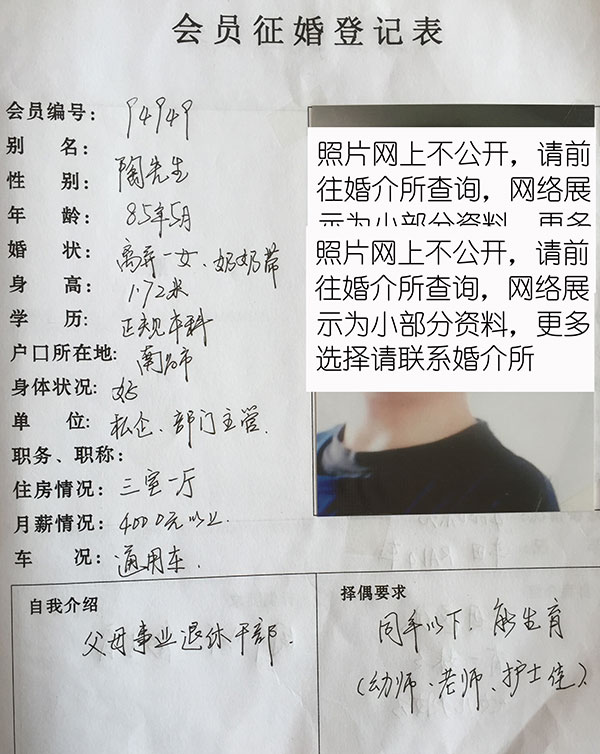 会员征婚登记表
会员编号: 94949
别 名: 陶先生
性 别:
年 龄: 85年5月
婚 状: 离异一女、奶奶带
身 高: 1.72米
学 历: 正规本科
户口所在地: 南昌市
身体状况: 好
单 位: 私企、部门主管.
职务、职称:
住房情况: 三室一厅
月薪情况: 4000元以上.
车 况: 通用车.
照片网上不公开，请前
往婚介所查询，网络展
示为小部分资料，更多
照片网上不公开，请前
往婚介所查询，网络展
示为小部分资料，更多
选择请联系婚介所
自我介绍
父母事业退休干部.
择偶要求
同年以下. 能生育
(幼师、老师、护士佳)